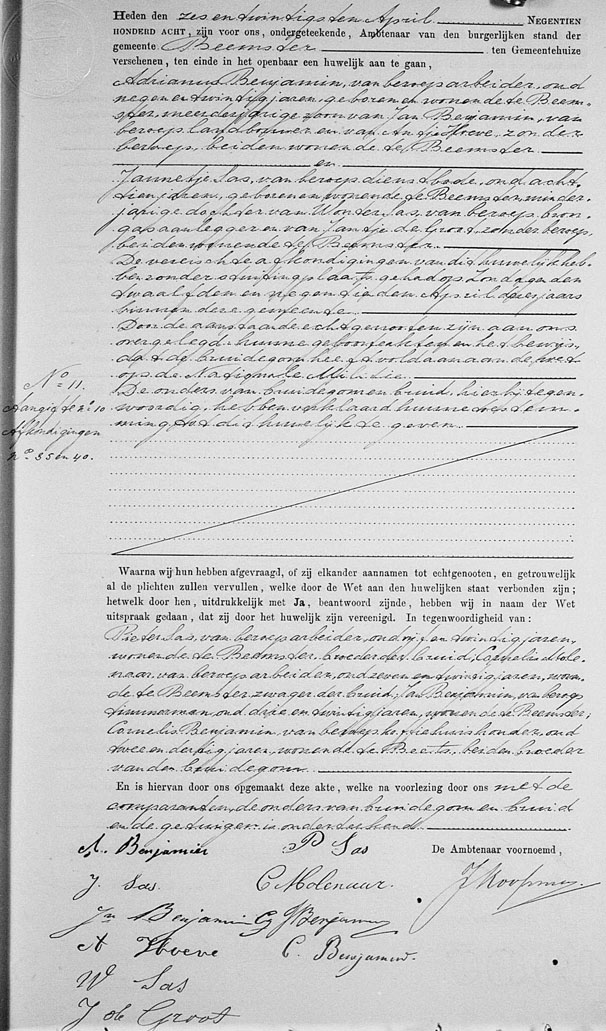 Heden den zes en twintigsten April NEGENTIEN
HONDERD ACHT, zijn voor ons, ondergeteekende, Ambtenaar van den burgerlijken stand der
gemeente Beemster ten Gemeentehuize
verschenen, ten einde in het openbaar een huwelijk aan te gaan,
Adrianus Benjamin, van beroep arbeider, oud
negen en twintig jaren, geboren en wonende te Beem-
ster, meerderjarige zoon van Jan Benjamin, van
beroep landbouwer en van Antje Hoeve, zonder
beroep, beiden wonende te Beemster
en
Jannetje Sas, van beroep dienstbode, oud acht-
tien jaren, geboren en wonende te Beemster, minder-
jarige dochter van Wouter Sas, van beroep
en van Jantje de Groot, zonder beroep,
beiden wonende te Beemster.
De vereischte afkondigingen van dit huwelijk heb-
ben zonder stuiting plaats gehad op Zondagen den
twaalfden en negentienden April dezes jaars
binnen deze gemeente.
Door de aanstaande echtgenooten zijn aan ons
overgelegd: hunne geboorteakten en het bewijs,
dat de bruidegom heeft voldaan aan de wet
op de Nationale Militie.
De ouders van bruidegom en bruid, hierbij tegen-
woordig, hebben verklaard hunne toestem-
ming tot dit huwelijk te geven.
No 11.
Aangifte no 10
Afkondigingen
no 35 en 40.
Waarna wij hun hebben afgevraagd, of zij elkander aannamen tot echtgenooten, en getrouwelijk
al de plichten zullen vervullen, welke door de Wet aan den huwelijken staat verbonden zijn;
hetwelk door hen, uitdrukkelijk met Ja, beantwoord zijnde, hebben wij in naam der Wet
uitspraak gedaan, dat zij door het huwelijk zijn vereenigd. In tegenwoordigheid van:
Pieter Sas, van beroep arbeider, oud vijf en twintig jaren,
wonende te Beemster, broeder der bruid, Cornelis Mole-
naar, van beroep arbeider, oud zeven en twintig jaren, wonen-
de te Beemster, zwager der bruid, Jan Benjamin, van beroep
timmerman, oud drie en twintig jaren, wonende te Beemster,
Cornelis Benjamin, van beroep koffiehuishouder, oud
twee en dertig jaren, wonende te Beets, beiden broeder
van den bruidegom.
En is hiervan door ons opgemaakt deze akte, welke na voorlezing door ons met de
comparanten, de ouders van bruidegom en bruid
en de getuigen is onderteekend.
A. Benjamin P Sas De Ambtenaar voornoemd,
J. Sas C Molenaar.
Jn Benjamin Benjamin
A Hoeve C. Benjamin.
W Sas
J de Groot